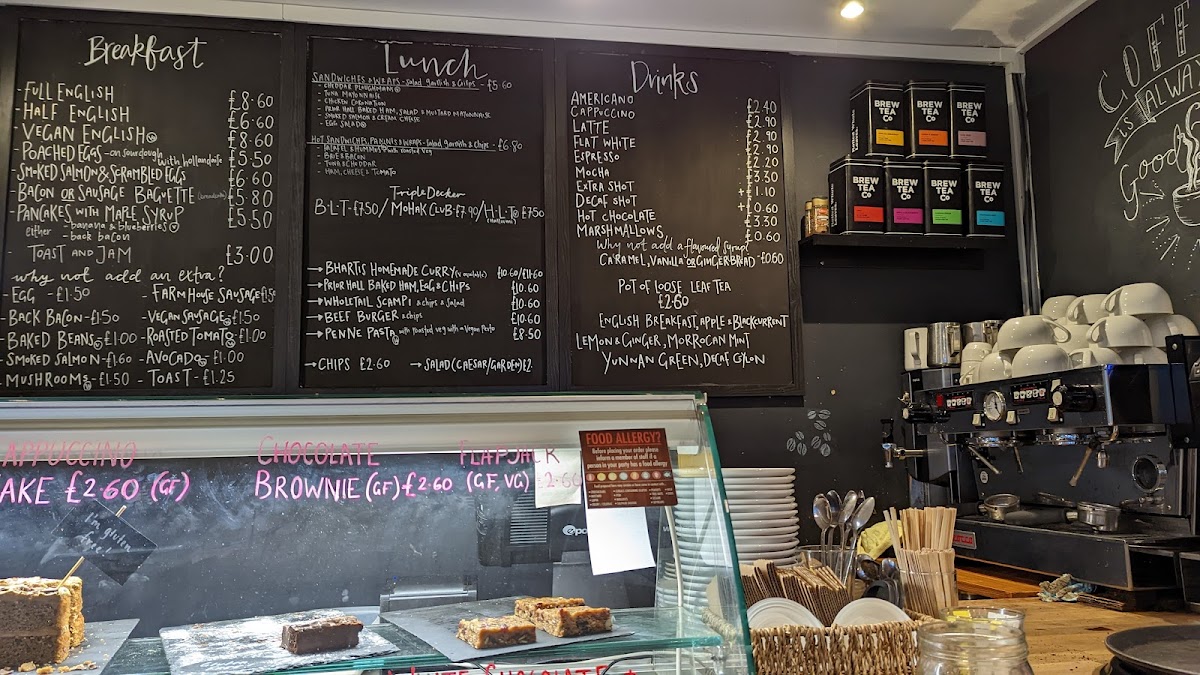 Breakfast
- FULL ENGLISH £8.60
- HALF ENGLISH £6.60
- VEGAN ENGLISH £8.60
- POACHED EGGS - on sourdough with hollandaise £5.50
- SMOKED SALMON & SCRAMBLED EGGS £6.60
- BACON OR SAUSAGE BAGUETTE £5.80
- PANCAKES with MAPLE SYRUP £5.50
either - banana & blueberries
- back bacon
TOAST AND JAM £3.00
why not add an extra?
- EGG - £1.50 - FARMHOUSE SAUSAGE £1.50
- BACK BACON - £1.50 - VEGAN SAUSAGE £1.50
- BAKED BEANS £1.00 - ROASTED TOMATO £1.00
- SMOKED SALMON - £1.60 - AVOCADO £1.00
- MUSHROOMS - £1.50 - TOAST - £1.25
Lunch
SANDWICHES & WRAPS - salad garnish & crisps - £5.60
- CHEDDAR PLOUGHMAN
- TUNA MAYONNAISE
- CHICKEN CORONATION
- PRIOR HALL BAKED HAM, SALAD & MUSTARD MAYONNAISE
- SMOKED SALMON & CREAM CHEESE
- EGG SALAD
HOT SANDWICHES, PANINIS & WRAPS - salad, garnish & chips - £6.80
- FALAFEL & HUMMUS with roasted veg
- BRIE & BACON
- TUNA & CHEDDAR
- HAM, CHEESE & TOMATO
Triple Decker
B·L·T·£7.50 / MOHAK CLUB·£7.90 / H·L·T £7.50
→ BHARTIS HOMEMADE CURRY £10.60/£11.60
→ PRIOR HALL BAKED HAM, EGG & CHIPS £10.60
→ WHOLETAIL SCAMPI & chips & salad £10.60
→ BEEF BURGER & chips £10.60
→ PENNE PASTA with roasted veg with a vegan pesto £8.50
→ CHIPS £2.60 → SALAD (CAESAR/GARDEN) £2.
Drinks
AMERICANO £2.40
CAPPUCCINO £2.90
LATTE £2.90
FLAT WHITE £2.90
ESPRESSO £2.20
MOCHA £3.30
EXTRA SHOT +£1.10
DECAF SHOT +£0.60
HOT CHOCOLATE £3.30
MARSHMALLOWS +£0.60
Why not add a flavoured syrup
CARAMEL, VANILLA OR GINGERBREAD - £0.60
POT OF LOOSE LEAF TEA
£2.60
ENGLISH BREAKFAST, APPLE & BLACKCURRENT
LEMON & GINGER, MORROCAN MINT
YUNNAN GREEN, DECAF CEYLON
BREW TEA Co
BREW TEA Co
BREW TEA Co
BREW TEA Co
BREW TEA Co
BREW TEA Co
BREW TEA Co
COFF
IS ALWAY
Good
APPUCCINO
AKE £2.60 (GF)
CHOCOLATE
BROWNIE (GF) £2.60
FLAPJACK
(GF, VG) £2.60
I'm gluten free!
FOOD ALLERGY?
Before placing your order please
inform a member of staff if a
person in your party has a food allergy
WHITE CHOCOLATE +